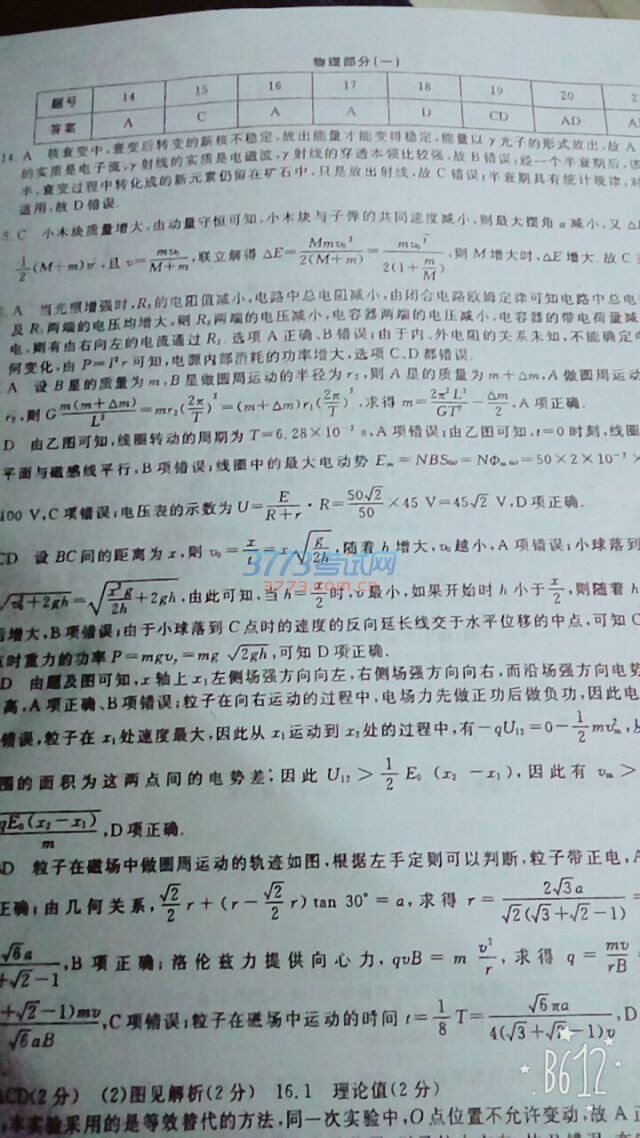 物理部分(一)
题号 14 15 16 17 18 19 20
答案 A C A A D CD AD
14. A 核衰变中,衰变后转变的新核不稳定,放出能量才能变得稳定,能量以 γ 光子的形式放出,故 A
的实质是电子流,γ 射线的实质是电磁波,γ 射线的穿透本领比较强,故 B 错误;经一个半衰期后,
半,衰变过程中转化成的新元素仍留在矿石中,只是放出射线,故 C 错误;半衰期具有统计规律,对
适用,故 D 错误.
5. C 小木块质量增大,由动量守恒可知,小木块与子弹的共同速度减小,则最大摆角 α 减小,又 Δ
1/2(M+m)v²,且 v=mv₀/(M+m),联立解得 ΔE=Mmv₀²/2(M+m)=mv₀²/2(1+m/M),则 M 增大时,ΔE 增大.故 C
A 当光照增强时,R₃的电阻值减小,电路中总电阻减小,由闭合电路欧姆定律可知电路中总电
及 R₁ 两端的电压均增大,则 R₃ 两端的电压减小,电容器两端的电压减小,电容器的带电荷量减
电,则有由右向左的电流通过 R₂.选项 A 正确、B 错误;由于内、外电阻的关系未知,不能确定
何变化,由 P=I²r 可知,电源内部消耗的功率增大,选项 C、D 都错误.
A 设 B 星的质量为 m,B 星做圆周运动的半径为 r₂,则 A 星的质量为 m+Δm,A 做圆周运动
r₁,则 G m(m+Δm)/L²=mr₂(2π/T)²=(m+Δm)r₁(2π/T)²,求得 m=2π²L³/GT²−Δm/2,A 项正确.
D 由乙图可知,线圈转动的周期为 T=6.28×10⁻² s,A 项错误;由乙图可知,t=0 时刻,线圈
平面与磁感线平行,B 项错误;线圈中的最大电动势 Eₘ=NBSω=NΦₘω=50×2×10⁻²×
100 V,C 项错误;电压表的示数为 U=E/(R+r)·R=50√2/50×45 V=45√2 V,D 项正确.
CD 设 BC 间的距离为 x,则 v₀=x/t=x√(g/2h),随着 h 增大,v₀ 越小,A 项错误;小球落到
3773考试网
3773.com.cn
√(v₀²+2gh)=√(x²g/2h+2gh),由此可知,当 h=x/2 时,v 最小,如果开始时 h 小于 x/2,则随着 h
增大,B 项错误;由于小球落到 C 点时的速度的反向延长线交于水平位移的中点,可知 C
时重力的功率 P=mgvᵧ=mg√(2gh),可知 D 项正确.
D 由题及图可知,x 轴上 x₁ 左侧场强方向向左,右侧场强方向向右,而沿场强方向电势
高,A 项正确、B 项错误;粒子在向右运动的过程中,电场力先做正功后做负功,因此电
错误,粒子在 x₁ 处速度最大,因此从 x₁ 运动到 x₂ 处的过程中,有 −qU₁₂=0−1/2mvₘ²,
围的面积为这两点间的电势差;因此 U₁₂>1/2 E₀(x₂−x₁),因此有 vₘ>
√(qE₀(x₂−x₁)/m),D 项正确.
D 粒子在磁场中做圆周运动的轨迹如图,根据左手定则可以判断,粒子带正电,A
正确;由几何关系,√2/2 r+(r−√2/2 r)tan 30°=a,求得 r=2√3a/√2(√3+√2−1)=
√6a/+√2−1,B 项正确;洛伦兹力提供向心力,qvB=m v²/r,求得 q=mv/rB
+√2−1)mv/√6aB,C 项错误;粒子在磁场中运动的时间 t=1/8 T=√6πa/4(√3+√2−1)v,D
ACD(2 分) (2)图见解析(2 分) 16.1 理论值(2 分)
本实验采用的是等效替代的方法,同一次实验中,O 点位置不允许变动,故 A
B612